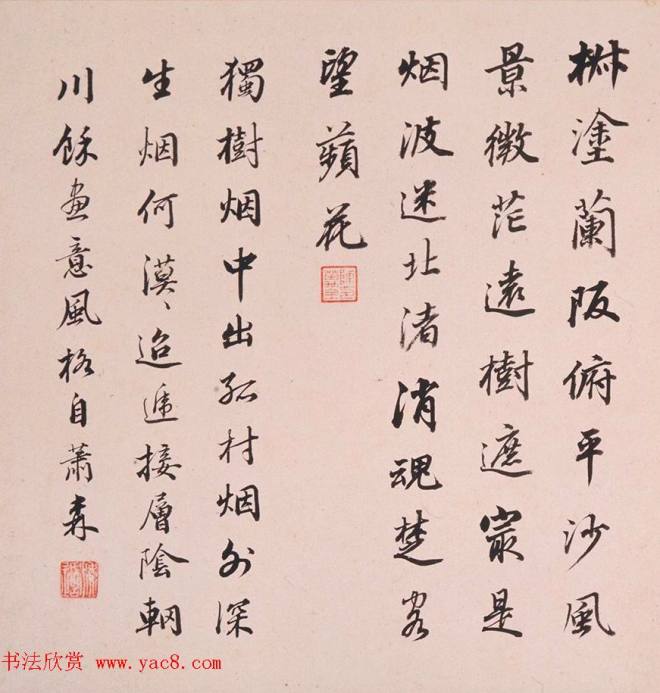 椒塗蘭阪俯平沙風
景微茫遠樹遮最是
烟波迷北渚消魂楚客
望蘋花
獨樹烟中出孤村烟外深
生烟何漠〻迢遞接層陰輞
川餘畫意風格自蕭森
书法欣赏 www.yac8.com